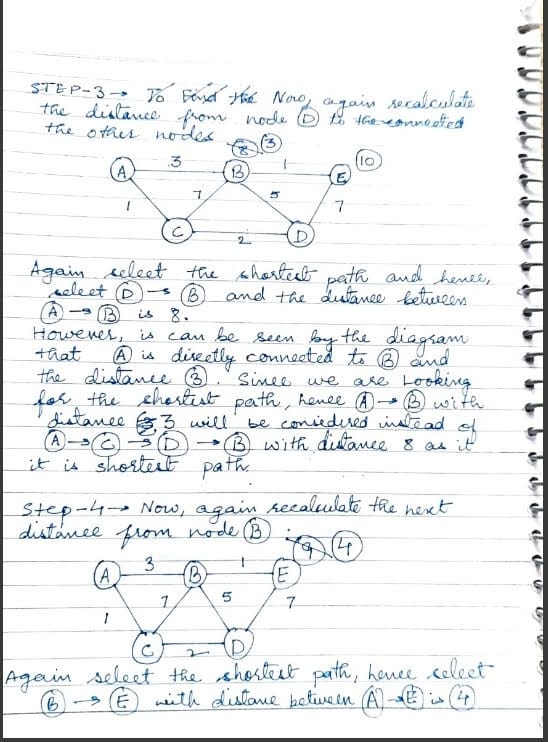 STEP-3 → To Find the Now, again recalculate
the distance from node (D) to the connected
the other nodes
8 3
A 3 B 1 E 10
1 7 5 7
C 2 D
Again select the shortest path and hence,
select (D) → (B) and the distance between
(A) → (B) is 8.
However, is can be seen by the diagram
that (A) is directly connected to (B) and
the distance (3). Since we are Looking
for the shortest path, hence (A) → (B) with
distance 3 will be considered instead of
(A) → (C) → (D) → (B) with distance 8 as it
it is shortest path.
Step-4 → Now, again recalculate the next
distance from node (B) :
9 4
A 3 B 1 E
1 7 5 7
C 2 D
Again select the shortest path, hence select
(B) → (E) with distane between (A) → (E) is (4)